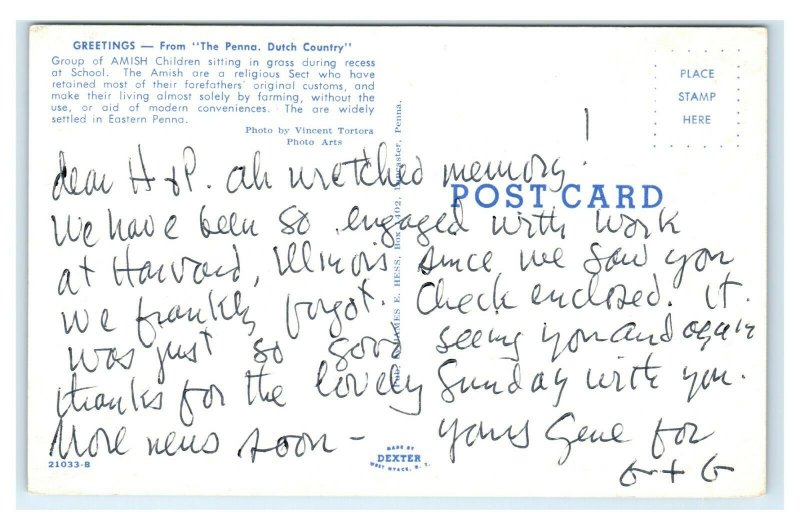 GREETINGS — From "The Penna. Dutch Country"
Group of AMISH Children sitting in grass during recess
at School. The Amish are a religious Sect who have
retained most of their forefathers' original customs, and
make their living almost solely by farming, without the
use, or aid of modern conveniences. The are widely
settled in Eastern Penna.
Photo by Vincent Tortora
Photo Arts
PLACE
STAMP
HERE
POST CARD
dear H & P. ah wretched memory!
We have been so engaged with work
at Harvard, Illinois since we saw you
we frankly forgot. Check enclosed. It
was just so good seeing you and again
thanks for the lovely Sunday with you.
More news soon – yours Gene for
G + G
JAMES E. HESS, Box 402, Lancaster, Penna.
MADE BY
DEXTER
WEST NYACK, N. Y.
21033-B